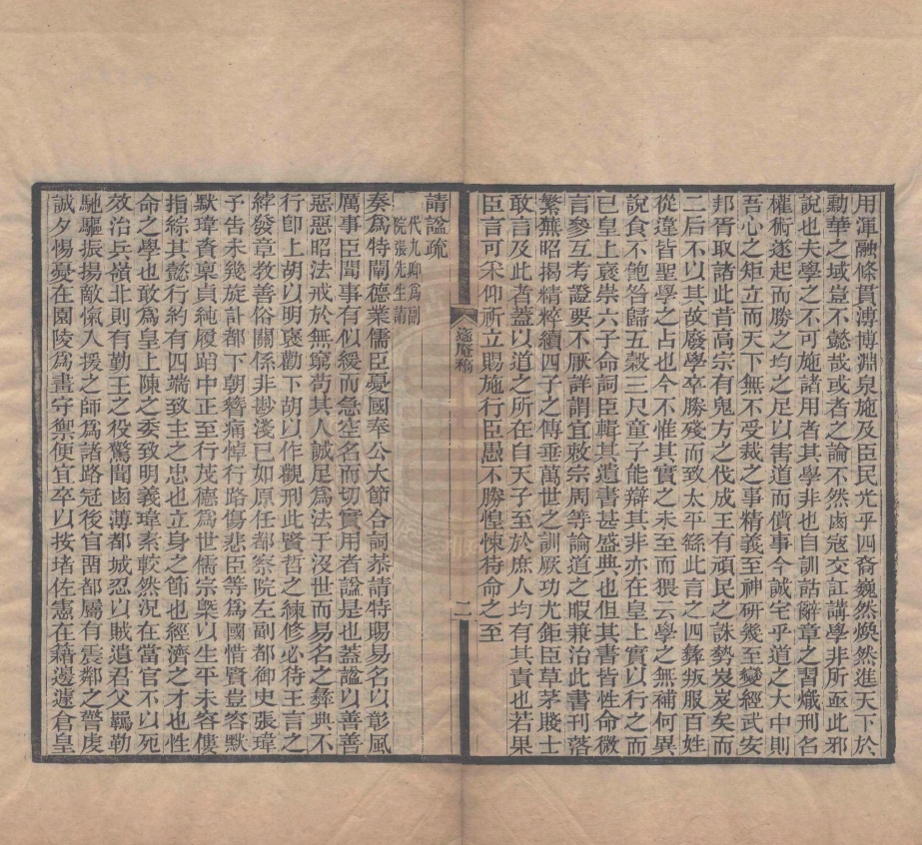 用渾融條貫溥博淵泉施及臣民光乎四裔巍然煥然進天下於
勳華之域豈不懿哉或者之論不然鹵寇交訌講學非所亟此邪
說也夫學之不可施諸用者其學非也自訓詁辭章之習熾刑名
權術遂起而勝之均之足以害道而僨事今誠宅乎道之大中則
吾心之矩立而天下無不受裁之事精義至神研幾至變經武安
邦胥取諸此昔高宗有鬼方之伐成王有頑民之誅勢岌岌矣而
二后不以其故廢學卒勝殘而致太平繇此言之四彝叛服百姓
從違皆聖學之占也今不惟其實之未至而猥云學之無補何異
說食不飽咎歸五穀三尺童子能辯其非亦在皇上實以行之而
已皇上襃崇六子命詞臣輯其遺書甚盛典也但其書皆性命微
言參互考證要不厭詳謂宜敕宗周等論道之暇兼治此書刊落
繁蕪昭揭精粹續四子之傳垂萬世之訓厥功尤鉅臣草茅賤士
敢言及此者蓋以道之所在自天子至於庶人均有其責也若果
臣言可采仰祈立賜施行臣愚不勝惶悚待命之至
稿
二
請諡疏
代九卿爲副
院張先生請
奏爲特闡德業儒臣憂國奉公大節合詞恭請特賜易名以彰風
厲事臣聞事有似緩而急空名而切實用者諡是也蓋諡以善善
惡惡昭法戒於無窮苟其人誠足爲法于沒世而易名之彝典不
行卽上胡以明襃勸下胡以作觀刑此賢哲之練修必待王言之
綍發章教善俗關係非尠淺已如原任都察院左副都御史張瑋
予告未幾旋訃都下朝簪痛悼行路傷悲臣等爲國惜賢豈容默
默瑋資稟貞純履蹈中正至行茂德爲世儒宗槩以生平未容僂
指綜其懿行約有四端致主之忠也立身之節也經濟之才也性
命之學也敢爲皇上陳之委致明義瑋素較然況在當官不以死
效治兵嶺北則有勤王之役驚聞鹵薄都城忍以賊遺君父羈勒
馳驅振揚敵愾入援之師爲諸路冠後官留都屬有震鄰之警虔
誠夕惕憂在園陵爲晝守禦便宜卒以按堵佐憲在藉邊遽倉皇